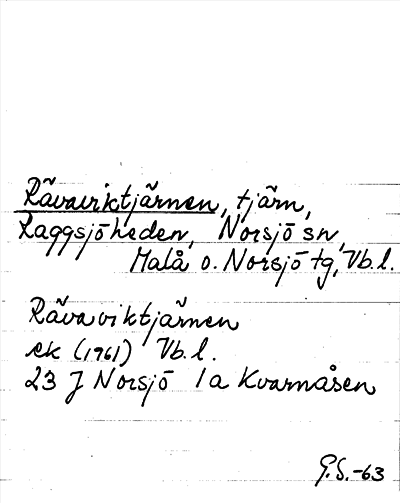 Rävaviktjärnen, tjärn,
Raggsjöheden, Norsjö sn,
Malå o. Norsjö tg, Vb.l.
Rävaviktjärnen
ek (1961) Vb.l.
23 J Norsjö 1a Kvarnåsen
G.S.-63